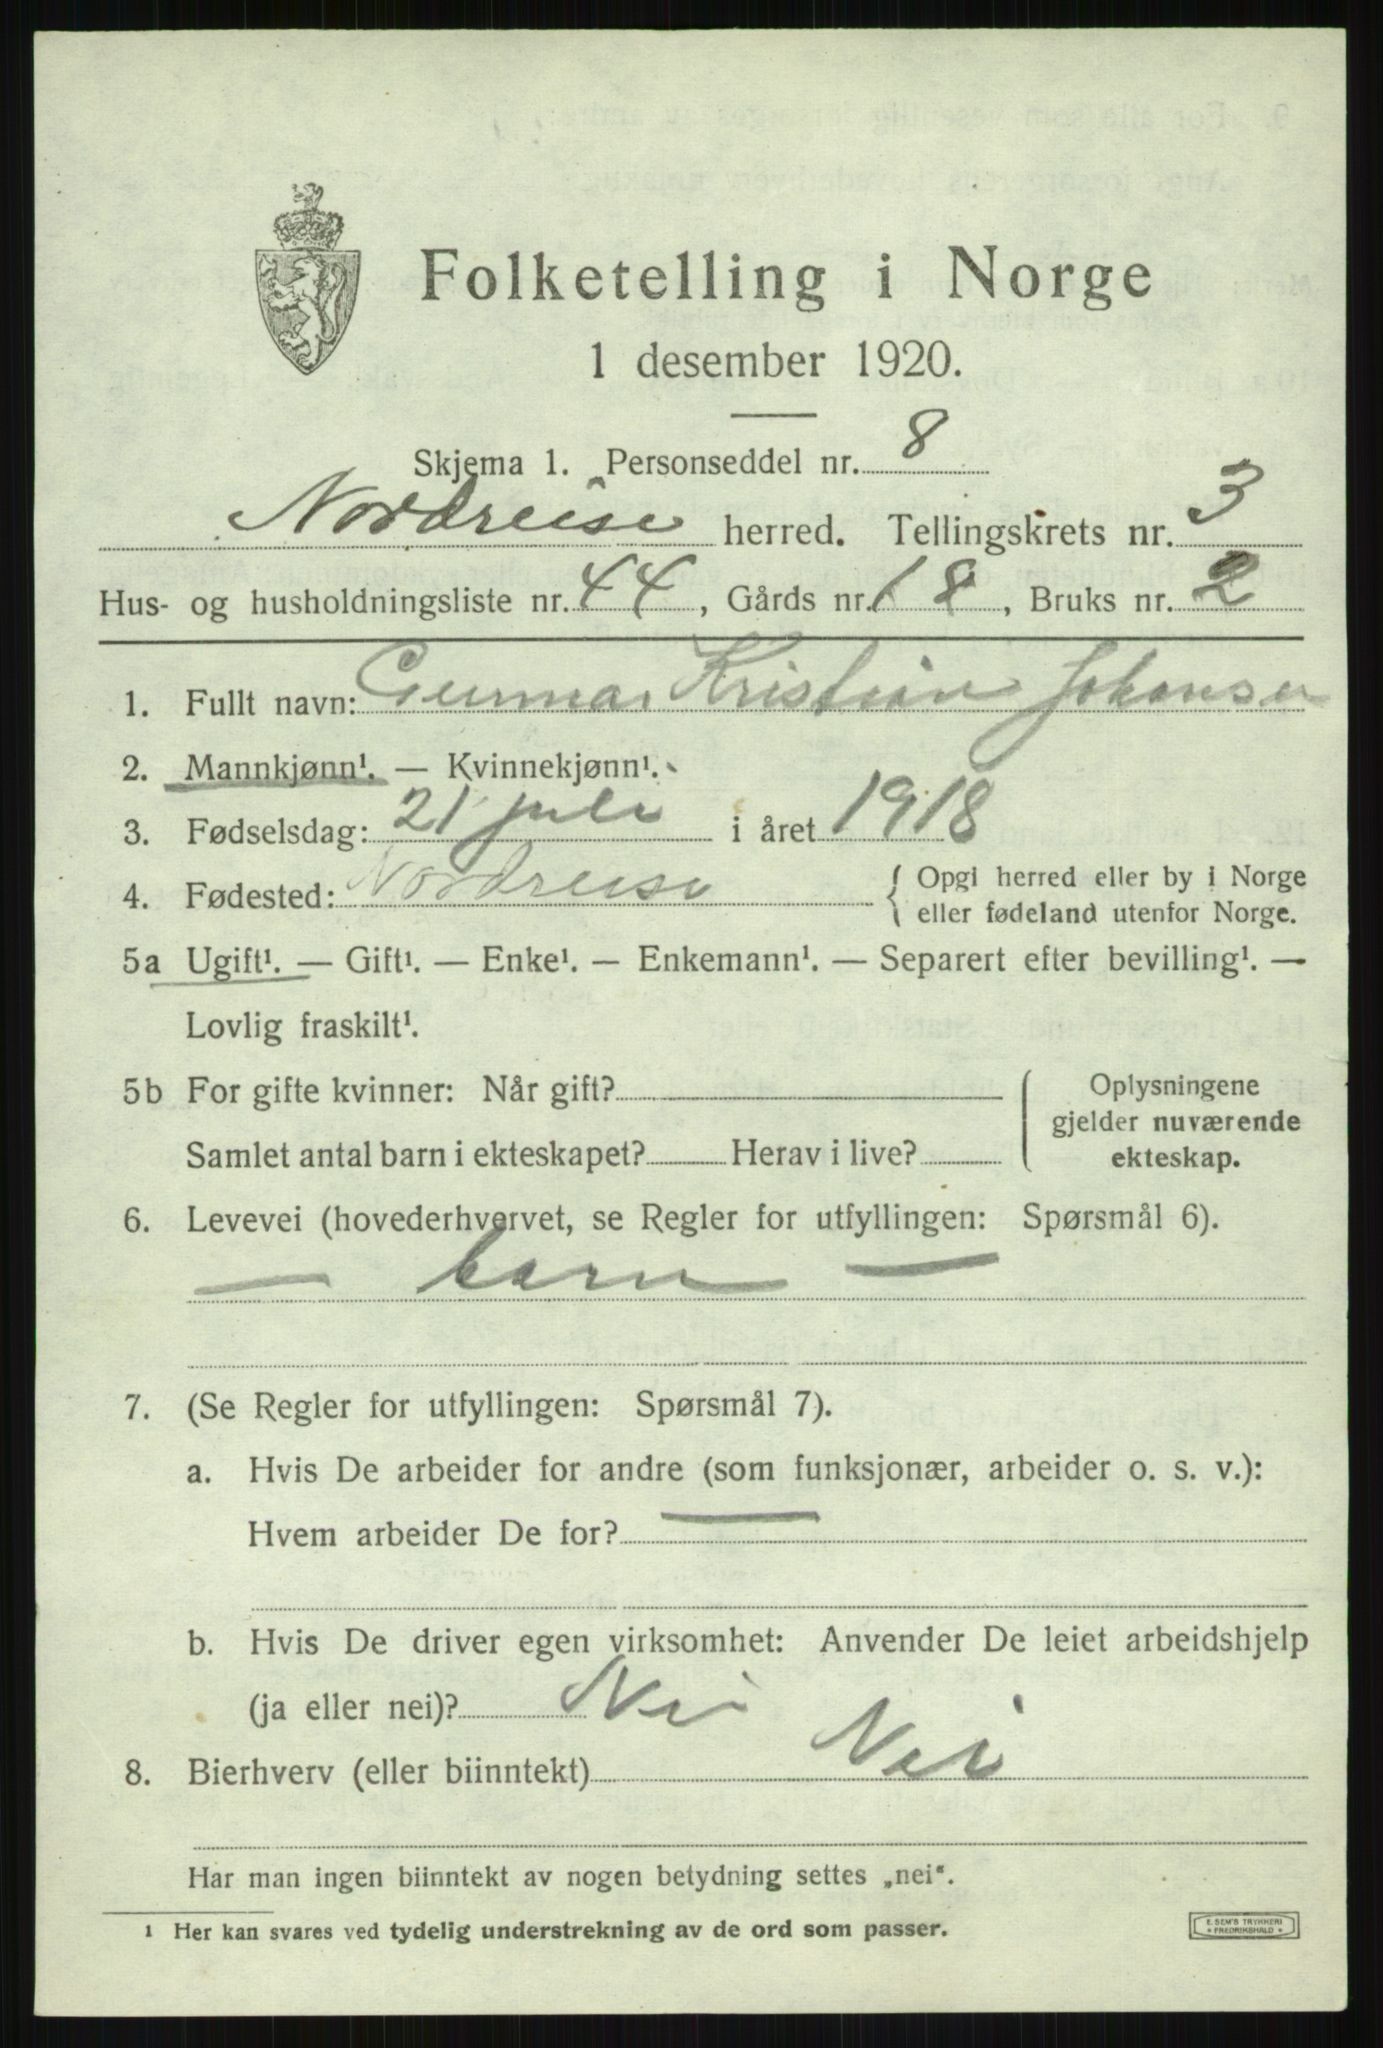 Folketelling i Norge
1 desember 1920.
Skjema 1. Personseddel nr. 8
Nordreisa herred. Tellingskrets nr. 3
Hus- og husholdningsliste nr. 44, Gårds nr. 18, Bruks nr. 2
1. Fullt navn: Gunnar Kristian Johansen
2. Mannkjønn¹. — Kvinnekjønn¹.
3. Fødselsdag: 21 juli i året 1918
4. Fødested: Nordreisa { Opgi herred eller by i Norge
eller fødeland utenfor Norge.
5a Ugift¹. — Gift¹. — Enke¹. — Enkemann¹. — Separert efter bevilling¹. —
Lovlig fraskilt¹.
5b For gifte kvinner: Når gift?
Samlet antal barn i ekteskapet? Herav i live?
Oplysningene
gjelder nuværende
ekteskap.
6. Levevei (hovederhvervet, se Regler for utfyllingen: Spørsmål 6).
— barn —
7. (Se Regler for utfyllingen: Spørsmål 7).
a. Hvis De arbeider for andre (som funksjonær, arbeider o. s. v.):
Hvem arbeider De for? —
b. Hvis De driver egen virksomhet: Anvender De leiet arbeidshjelp
(ja eller nei)? Nei
8. Bierhverv (eller biinntekt) Nei
Har man ingen biinntekt av nogen betydning settes „nei“.
¹ Her kan svares ved tydelig understrekning av de ord som passer.
E. SEM'S TRYKKERI
* FREDRIKSHALD *